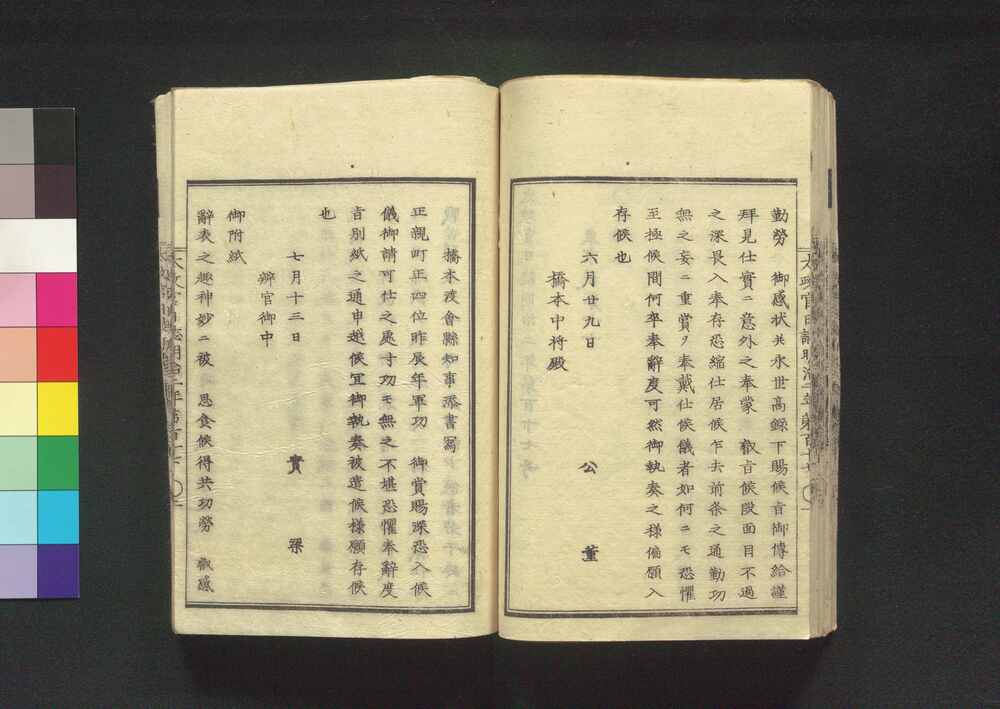 勤勞　御感狀共永世高祿下賜候旨御傳給謹
拜見仕實ニ意外之奉蒙　叡旨候段面目不過
之深畏入奉存恐縮仕居候乍去前条之通勤功
無之妄ニ重賞ヲ奉戴仕候儀者如何ニモ恐懼
至極候間何卒奉辭度可然御執奏之様偏願入
存候也
六月廿九日　公董
橋本中将殿
橋本渡會縣知事添書寫
正親町正四位昨辰年軍功ニ　御賞賜深恐入候
儀御請可仕之處寸功モ無之不堪恐懼奉辭度
旨別紙之通申越候冝御執奏被遣候様願存候
也
七月十三日　實梁
辨官御中
御附紙
辭表之趣神妙ニ被　思食候得共功勞　叡感